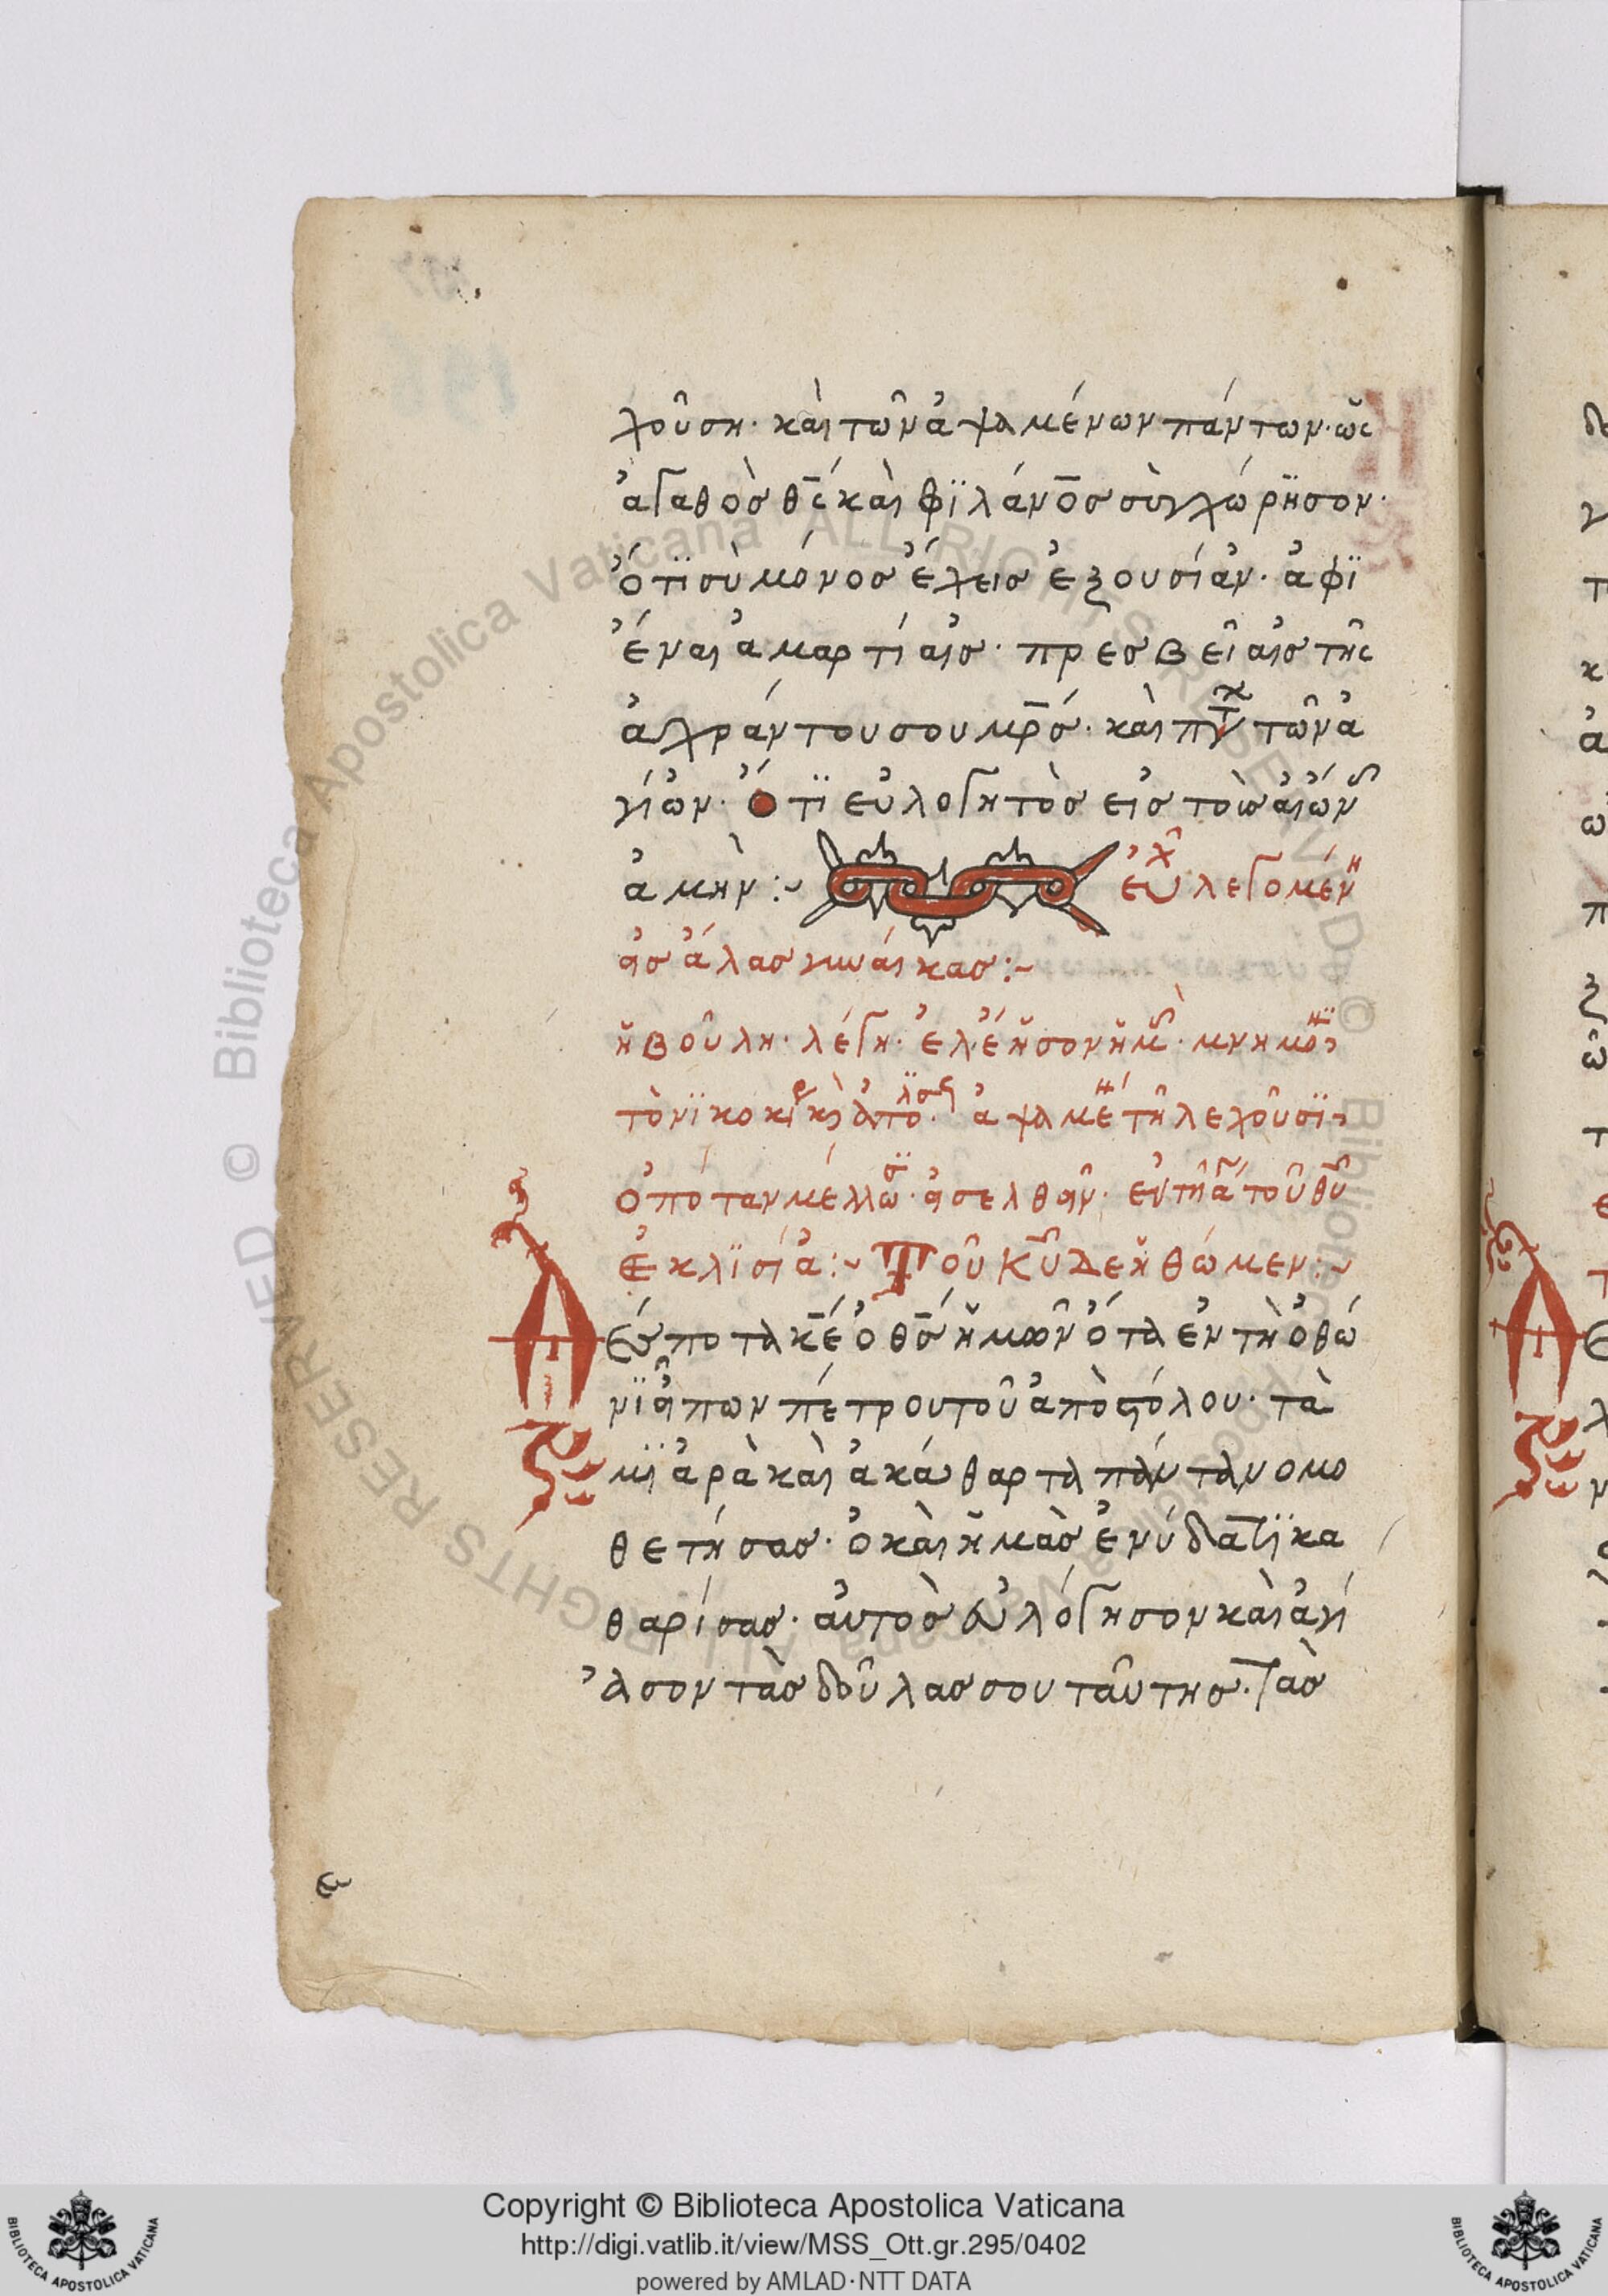 χοῦση· καὶ τῶν ἀψαμένων πάντων· ὡς
ἀγαθὸσ θ̅ς καὶ φϊλάνο̅σ σὺγχώρησον·
ὅτϊ σὺ μόνοσ ἔχεισ ἐξουσίἀν· ἀφϊ
έναι ἀμαρτίαισ· πρεσβεῖαισ τῆς
ἀχράντου σου μρ̅σ· καὶ πν τῶν ἀ
γίὠν· Ὅτϊ εὐλογητὸσ εισ τοὺσ ἀιών
ἀμὴν :~ εὐχ λεγομέν
εἰσ ἄλασ γυναίκασ :~
ἢ βοῦλη· λέγη· ἐλέησον ημ· μνημο
τὸνϊκοκι κὶ ἀπο· ἀψαμε τῆ λεχοῦσϊ
ὁπόταν μέλλω· εἰσελθειν· ἐν τῆ ἁ τοῦ θυ
ἐκλϊσίἀ :~ Τοῦ Κῦ δεηθώμεν :~
Δέσποτα κ̅ε ὁ θ̅σ ἡμῶν ὅτα ἐν τὴ ὀθώ
νϊ εἰπων πέτρου τοῦ ἀπὸστόλου· τὰ
μϊἀρὰ καὶ ἀκάθαρτα πάντα νομο
θετήσασ· ὁ καὶ ἡμὰσ ἐν ύδατϊ κα
θαρίσασ· ἀυτοσ εὐλόγησον καὶ ἀγί
ἀσον τὰσ δοῦλασ σου ταῦτησ· Τὰσ
Copyright © Biblioteca Apostolica Vaticana
http://digi.vatlib.it/view/MSS_Ott.gr.295/0402
powered by AMLAD·NTT DATA